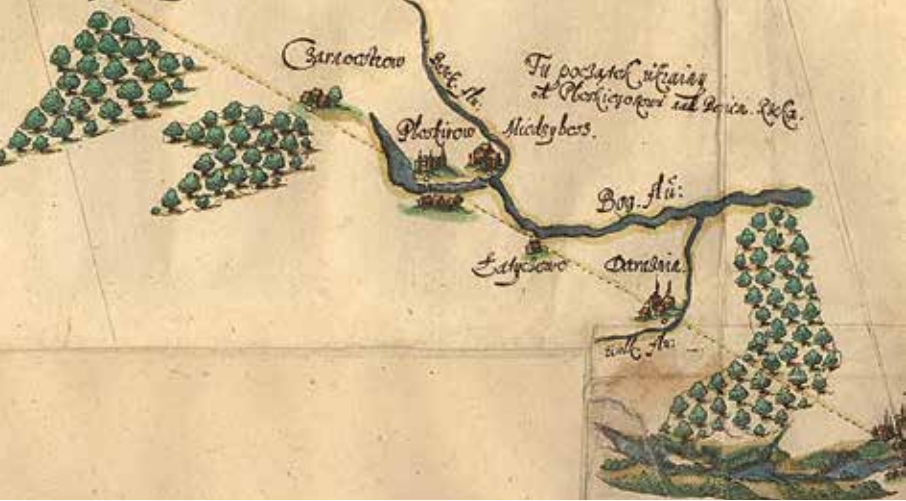 Czarnocstrow
Bozek flu:
Tu początek Ukrainy
od Ploskierowi nad Rzeka.
Ploskirow
Miedzybors.
Bog. flũ:
Latyczowo
Deraznia.
wolk flu: